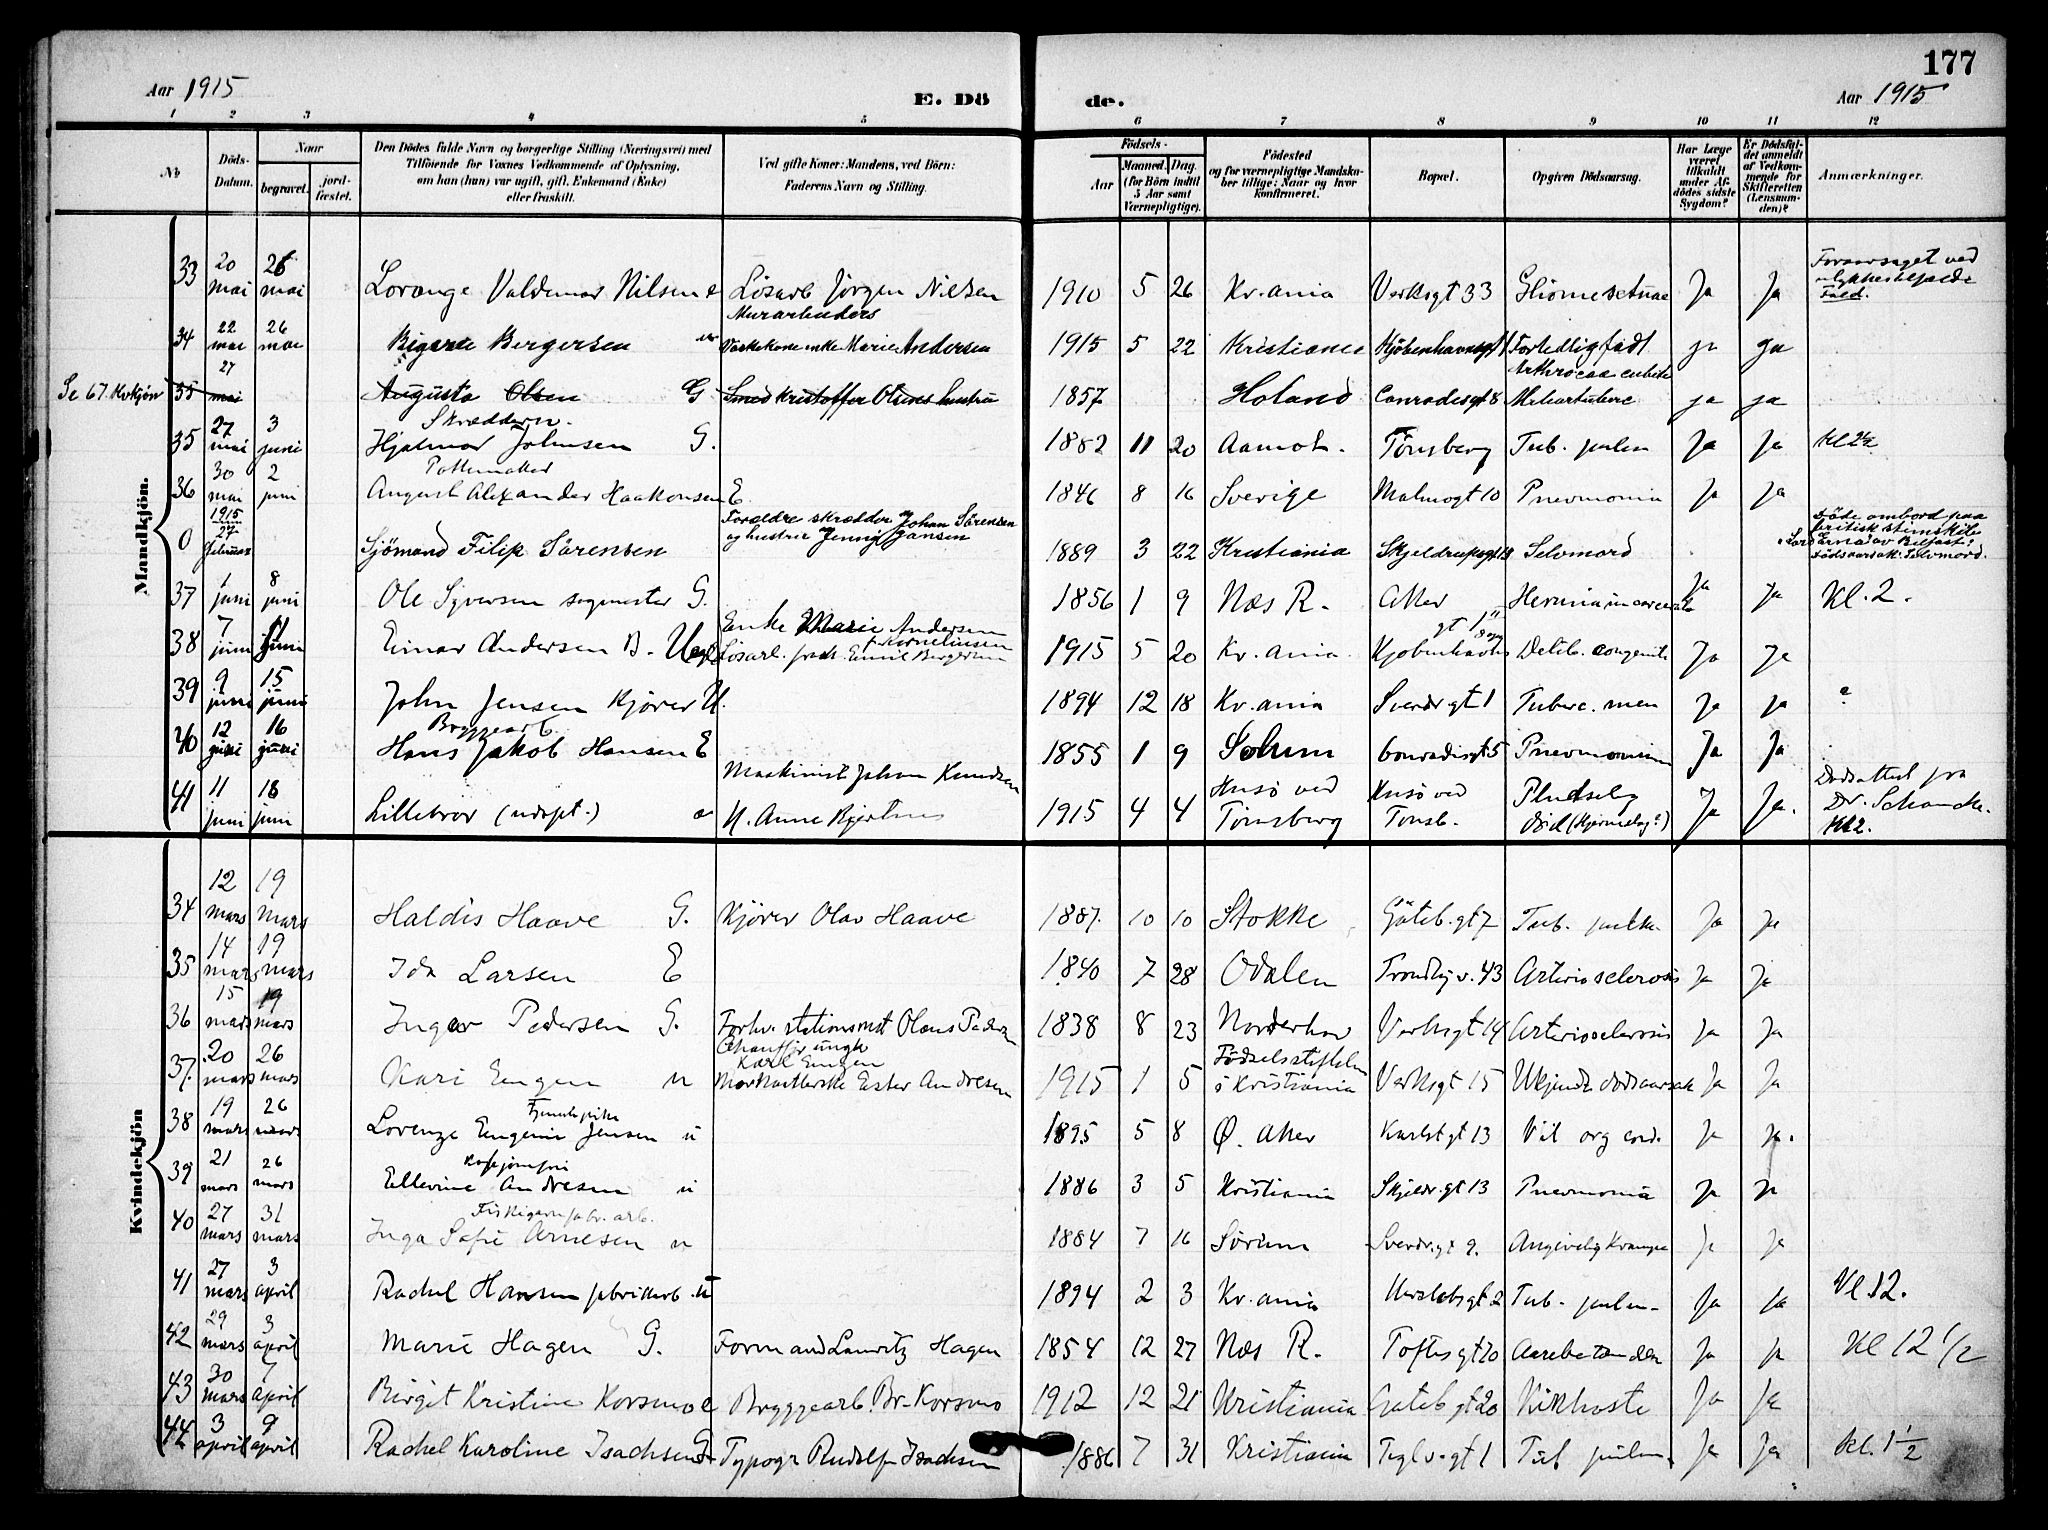 177
Aar 1915
E. Dö de.
Aar 1915
1 2 3 4 5 6 7 8 9 10 11 12
No
Döds-Datum.
Naar
begravet.
jord-fæstet.
Den Dödes fulde Navn og borgerlige Stilling (Næringsvei) med Tilföiende for Voxnes Vedkommende af Oplysning, om han (hun) var ugift, gift, Enkemand (Enke) eller fraskilt.
Ved gifte Koner: Mandens, ved Börn: Faderens Navn og Stilling.
Födsels-
Aar
Maaned. Dag.
(for Börn indtil 5 Aar samt Værnepligtige).
Födested
og for værnepligtige Mandskaber tillige: Naar og hvor konfirmeret.
Bopæl.
Opgiven Dödsaarsag.
Har Læge været tilkaldt under Afdödes sidste Sygdom?
Er Dödsfaldet anmeldt af Vedkommende for Skifteretten (Lensmanden)?
Anmærkninger.
Mandkjön.
33 20 mai 26 mai Lorange Valdemar Nilsen e Lösarb Jörgen Nielsen 1910 5 26 Kr.ania Verksgt 33 Ja Ja Foraarsaget ved ulykkestilfælde Fald.
34 22 mai 26 mai Bergersen Murarbeiders Vaskekone enke Marie Andersen 1915 5 22 Kristiania Kjöbenhavnsgt 1 Fortidlig født ja ja
Se 67. Kvkjön 35 27 mai Augusta Olsen G Smed Kristoffer Olsens hustru 1857 Höland Conradisgt 8 ja ja
35 27 mai 3 juni Skrædderm. Hjalmar Johnsen G. 1882 11 20 Aamot. Tönsberg Tub. pulm Ja Ja Kl 2½
36 30 mai 2 juni Pottemaker August Alexander Haakonsen E. 1846 8 16 Sverige Malmøgt 10 Pneomonia Ja Ja
0 1915 27 februar Sjömand Filip Sörensen Forældre skrædder Johan Sörensen og hustru Jenny Jansen 1889 3 22 Kristiania Skjeldrupsgt Selvmord Døde ombord paa britisk dødsaarsak: Selvmord.
37 1 juni 8 juni Ole Syversen sagmester G. 1856 1 9 Næs R. Aker Hernia incarcerata Ja Ja Kl. 2.
38 7 juni 11 juni Einar Andersen B. Uægte Enke Marie Andersen f. Kornelinsen Lösarb. frask. Emil Bergersen 1915 5 20 Kr.ania. Kjöbenhavns gt 1 Debil. congenita Ja Ja
39 9 juni 15 juni John Jensen Kjörer U. 1894 12 18 Kr.ania Sverdr.gt 1 Tuberc. men Ja Ja
40 12 juni 16 juni Bryggearb. Hans Jakob Hansen E 1855 1 9 Solum Conradisgt 5 Pneomonia Ja Ja
41 11 juni 18 juni Lillebror (udøpt.) e Maskinist Johan Knudsen H. Anne Kjerstine 1915 4 4 Husö ved Tönsberg Husö ved Tønsb. Pludselig Död (Hjerneslag?) Ja Ja. Dödsattest fra Dr. Schancke. Kl 2.
Kvindekjön
34 12 mars 19 mars Haldis Haave G. Kjörer Olav Haave 1887. 10 10 Stokke Göteb.gt 7 Tub. pulm. Ja Ja
35 14 mars 19 mars Ida Larsen E 1840 7 28 Odalen Trondhj v. 43 Arteriosclerosis Ja Ja
36 15 mars 19 mars Inger Pedersen G. Forhv. stationsmst Olaus Peders 1838 8 23 Norderhov Verksgt 14 Arteriosclerosis Ja Ja
37. 20 mars 26 mars Kari Engen u Chauffør ungk Karl Engen Syerske Ester Andresen 1915 1 5 Födselsstiftelsen i Kristiania Verksgt 15 Ukjendt dødsaarsak Ja Ja
38 19 mars 26 mars Tjenestepike Lorenze Eugenie Jensen u 1895 5 8 Ø. Aker Karlst gt 13 Vit. org cord. Ja Ja.
39 21 mars 26 mars Kafejomfru Ellevine Andresen u 1886 3 5 Kristiania Skjeldr.gt 13 Pneomonia Ja Ja
40 27 mars 31 mars Fiskegarnfabr. arb. Inga Sofie Arnesen u 1884 7 16 Sörum Sverdr.gt 9. Angivelig Krampe Ja Ja
41 27 mars 3 april Rachel Hansen fabrikarb. u 1894 2 3 Kr.ania Herslebsgt 2 Tub. pulm. Ja Ja Kl 12.
42 29 mars 3 april Marie Hagen G. Formand Lauritz Hagen 1854 12 27 Næs R. Toftesgt 20 Aarebetænden Ja Ja Kl 12 1/2
43 30 mars 7 april Birgit Kristine Korsmo e Bryggearb Br. Korsmo 1912 12 21 Kristiania Göteb gt 20 Kikhoste Ja Ja
44 3 april 9 april Rachel Karoline Isachsen G Typogr Rudolf Isachsen 1886 7 31 Kristiania Teglv.gt 1 Tub pulm. Ja Ja Kl. 1 1/2